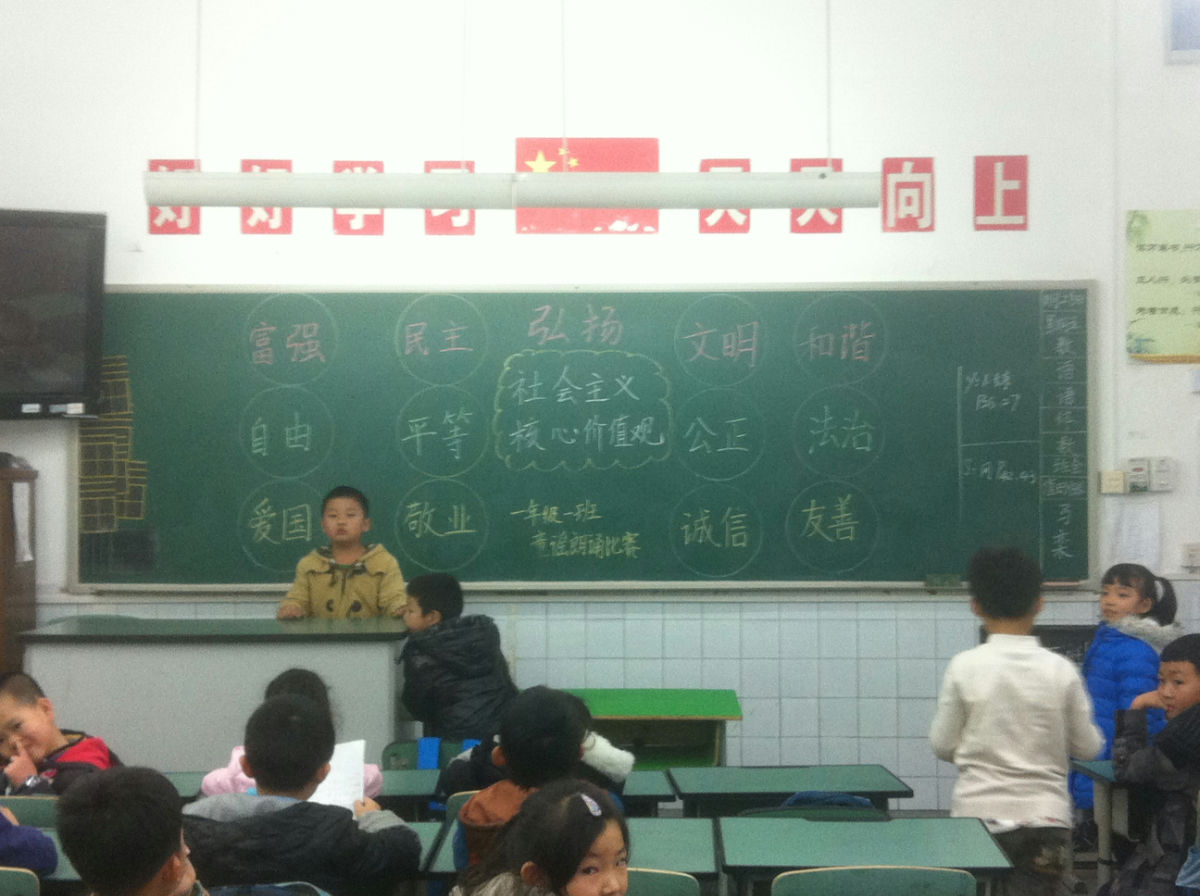 好好学习 天天向上
富强 民主 弘扬 文明 和谐
社会主义
自由 平等 核心价值观 公正 法治
爱国 敬业 一年级一班 诚信 友善
童谣朗诵比赛
数
语
语
数